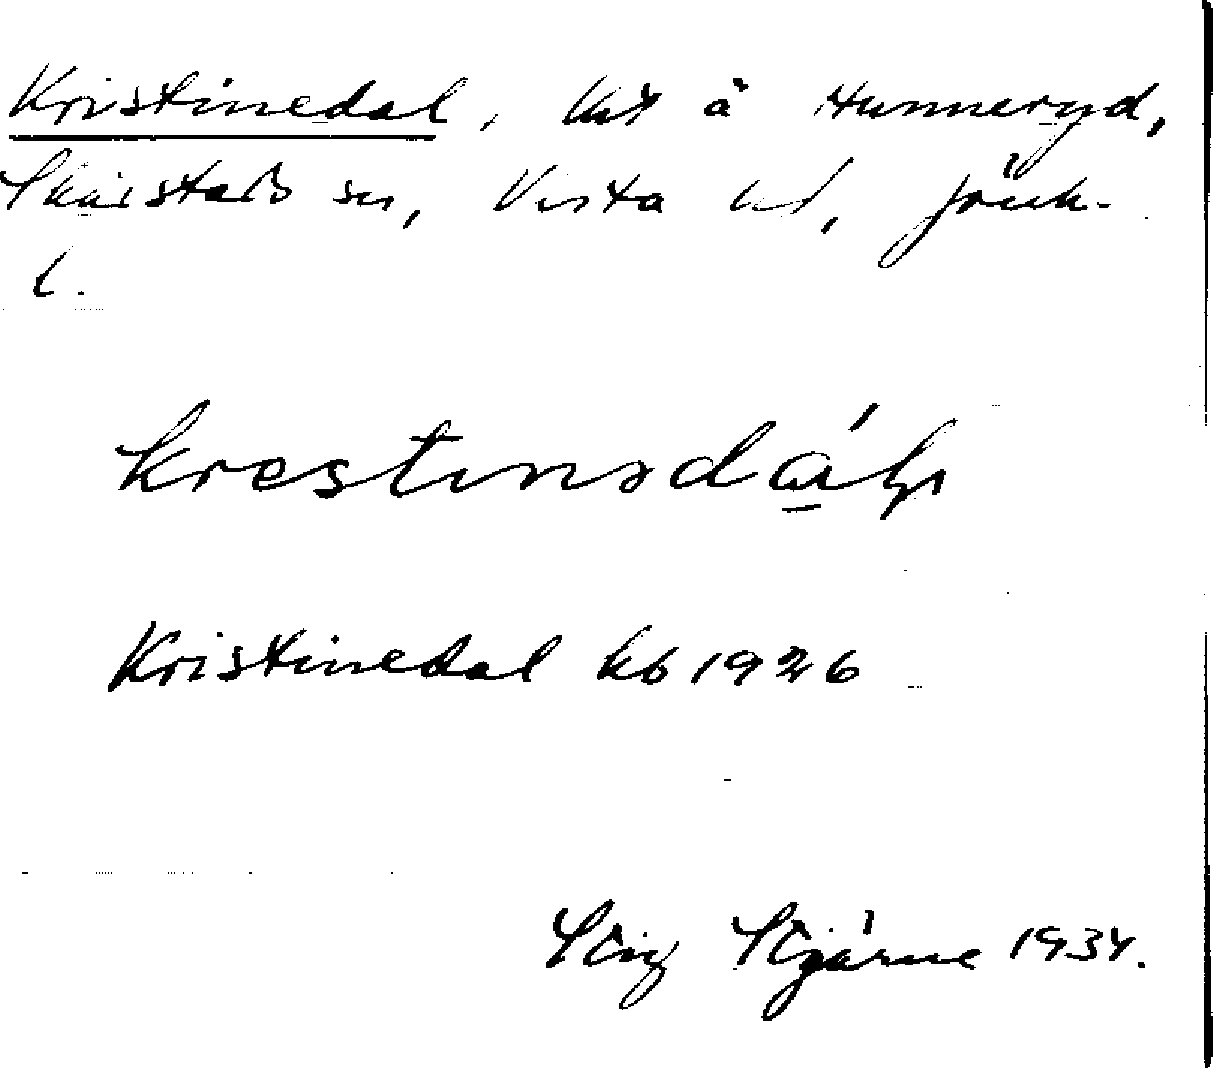 Kristinedal, lht å Hunneryd,
Skärstads sn, Vista hd, Jönk.
l.
krestinədálı
Kristinedal kb 1926
Stig Stjärne 1934.